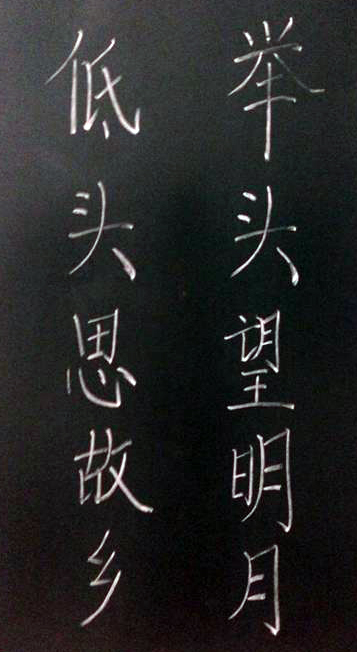 举头望明月
低头思故乡